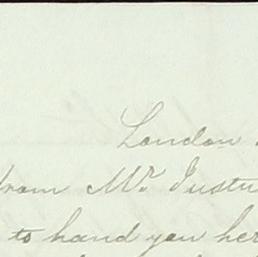 London
from Mr. Justu
to hand you her